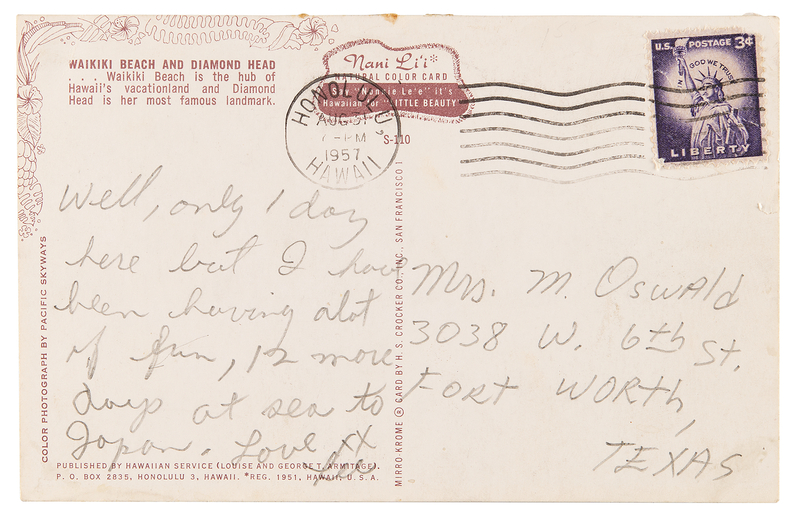 WAIKIKI BEACH AND DIAMOND HEAD
. . . . Waikiki Beach is the hub of
Hawaii's vacationland and Diamond
Head is her most famous landmark.
Nani Li'i*
NATURAL COLOR CARD
Say "Nonnie Le'e" it's
Hawaiian for "LITTLE BEAUTY"
S-110
HONOLULU,
AUG 31
PM
1957
HAWAII
U.S. POSTAGE 3¢
IN GOD WE TRUST
LIBERTY
Well, only 1 day
here but I have
been having alot
of fun, 12 more
days at sea to
Japan. Love XX
Lee
Mrs. M. Oswald
3038 W. 6th St.
Fort Worth,
Texas
COLOR PHOTOGRAPH BY PACIFIC SKYWAYS
MIRRO-KROME ® CARD BY H. S. CROCKER CO., INC., SAN FRANCISCO 1
PUBLISHED BY HAWAIIAN SERVICE (LOUISE AND GEORGE T. ARMITAGE).
P. O. BOX 2835, HONOLULU 3, HAWAII. *REG. 1951, HAWAII, U. S. A.